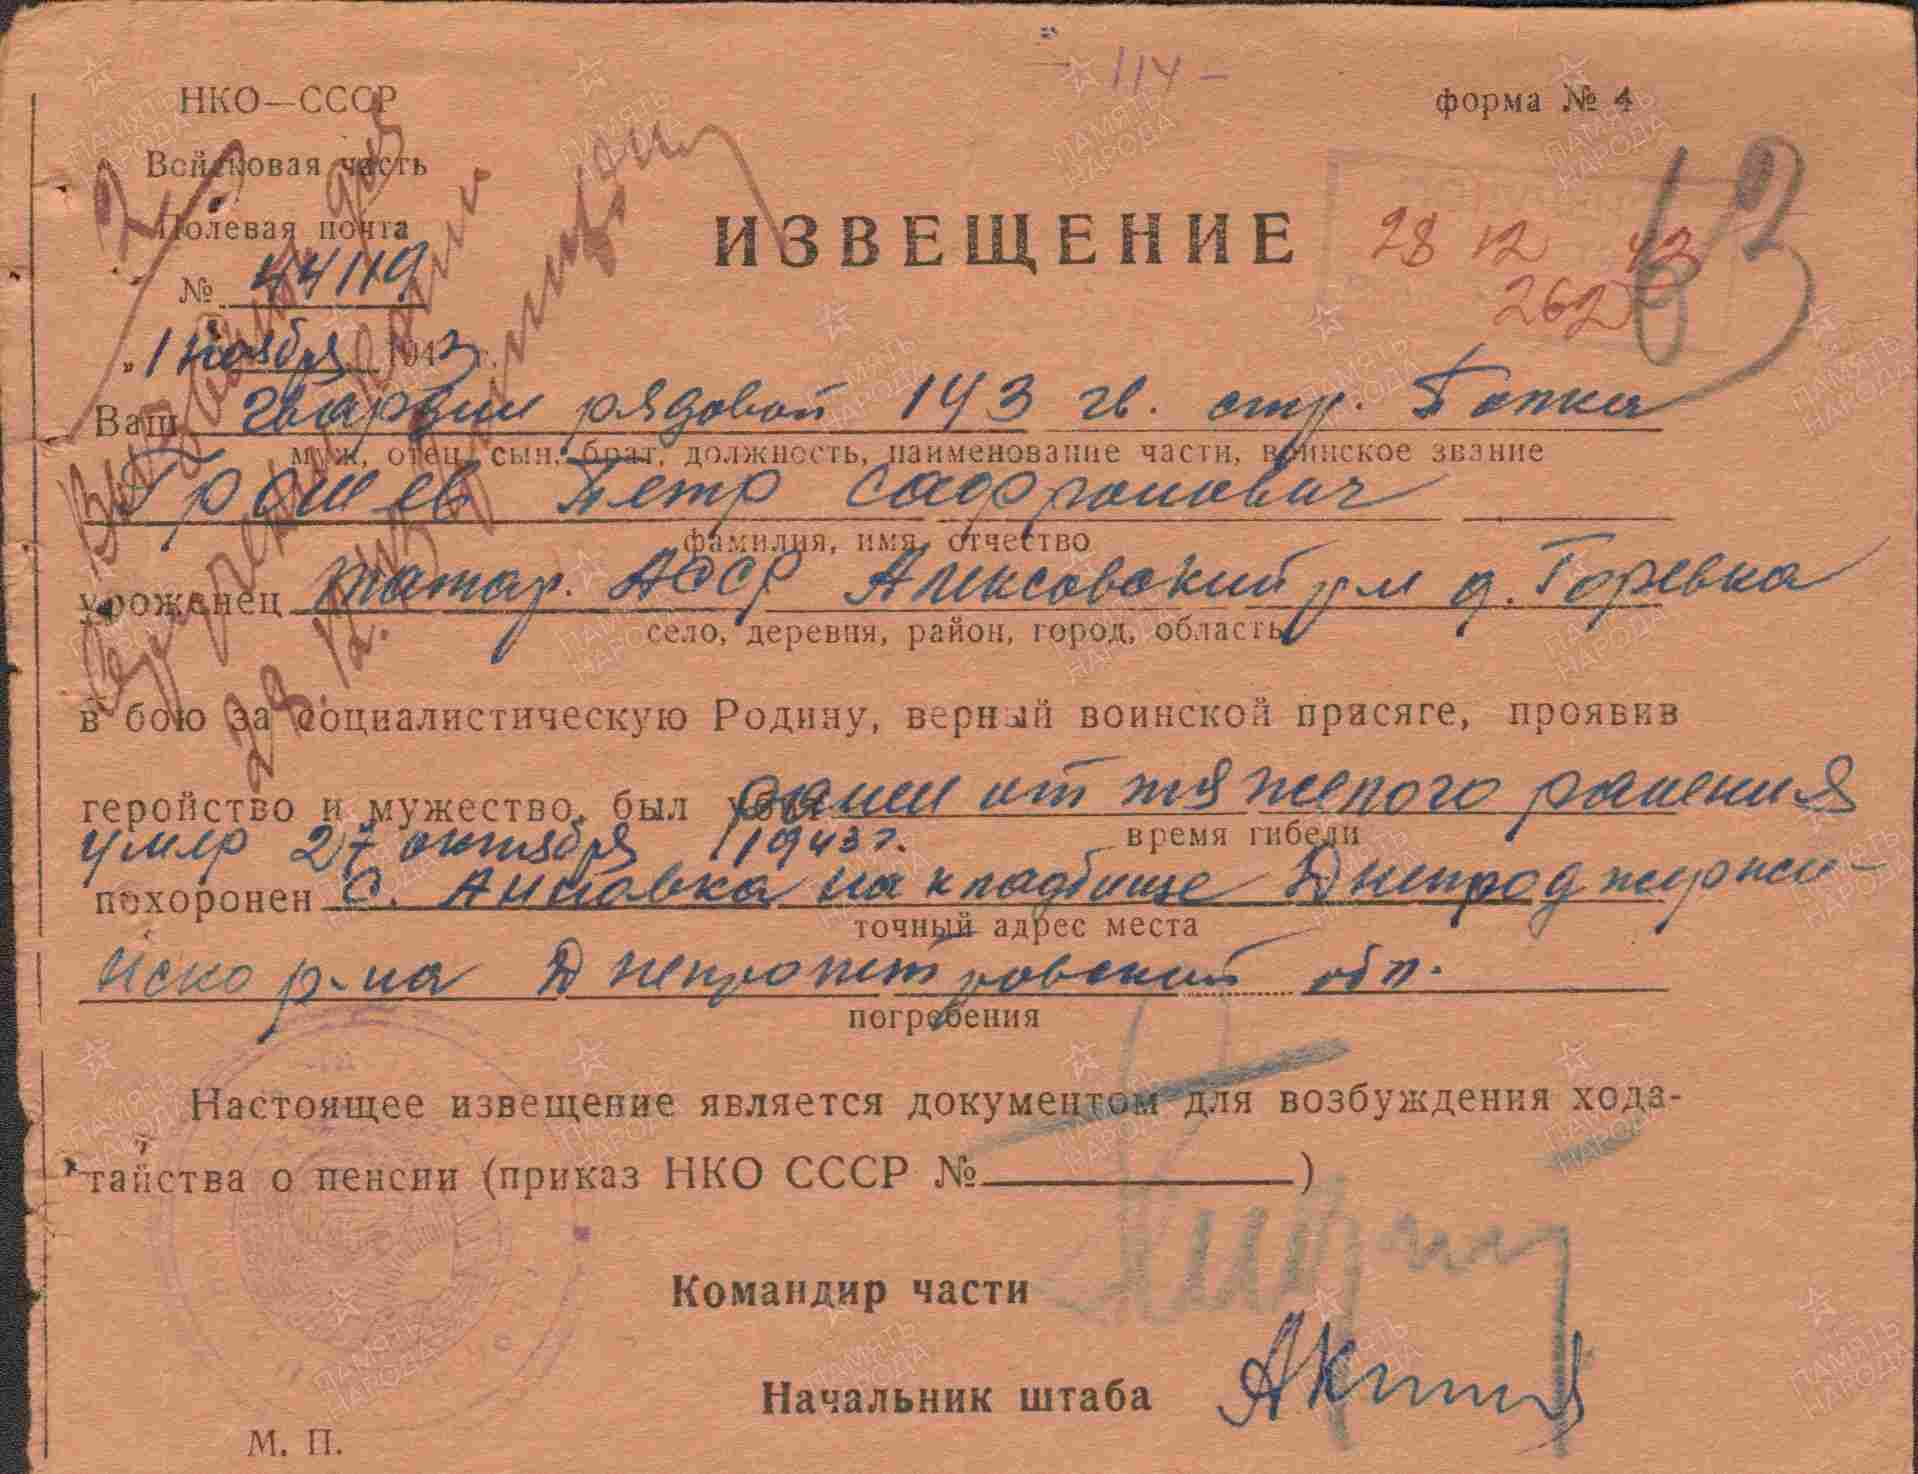 114 -
НКО—СССР
форма № 4
Войсковая часть
Полевая почта
ИЗВЕЩЕНИЕ
28 12 43
262
№ 44119
„1 ноября 1943 г.
Ваш гвардии рядовой 143 гв. стр. Полка
муж, отец, сын, брат, должность, наименование части, воинское звание
Грошев Петр Сафронович
фамилия, имя, отчество
уроженец Татар. АССР Алексовский р-н д. Горевка
село, деревня, район, город, область
в бою за социалистическую Родину, верный воинской присяге, проявив
геройство и мужество, был ранен от тяжелого ранения
время гибели
умер 27 октября 1943 г.
похоронен с. Анновка на кладбище Днепроджержи-
точный адрес места
нско р-на Днепропетровской обл.
погребения
Настоящее извещение является документом для возбуждения хода-
тайства о пенсии (приказ НКО СССР № )
Командир части
Начальник штаба
М. П.